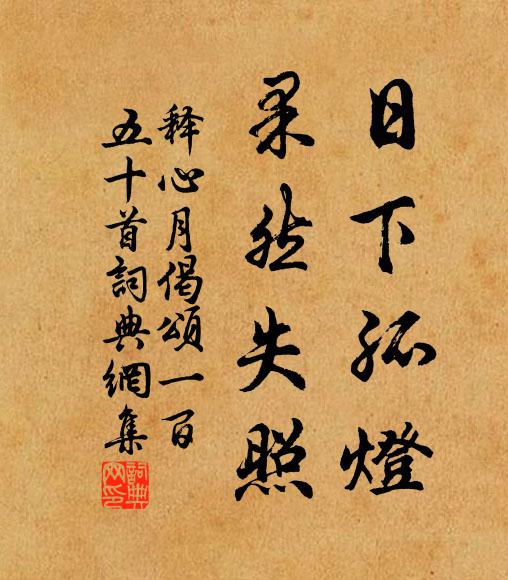 日下孤燈
果然失照
释心月偈頌一百
五十首詞典網集
詞典
网印